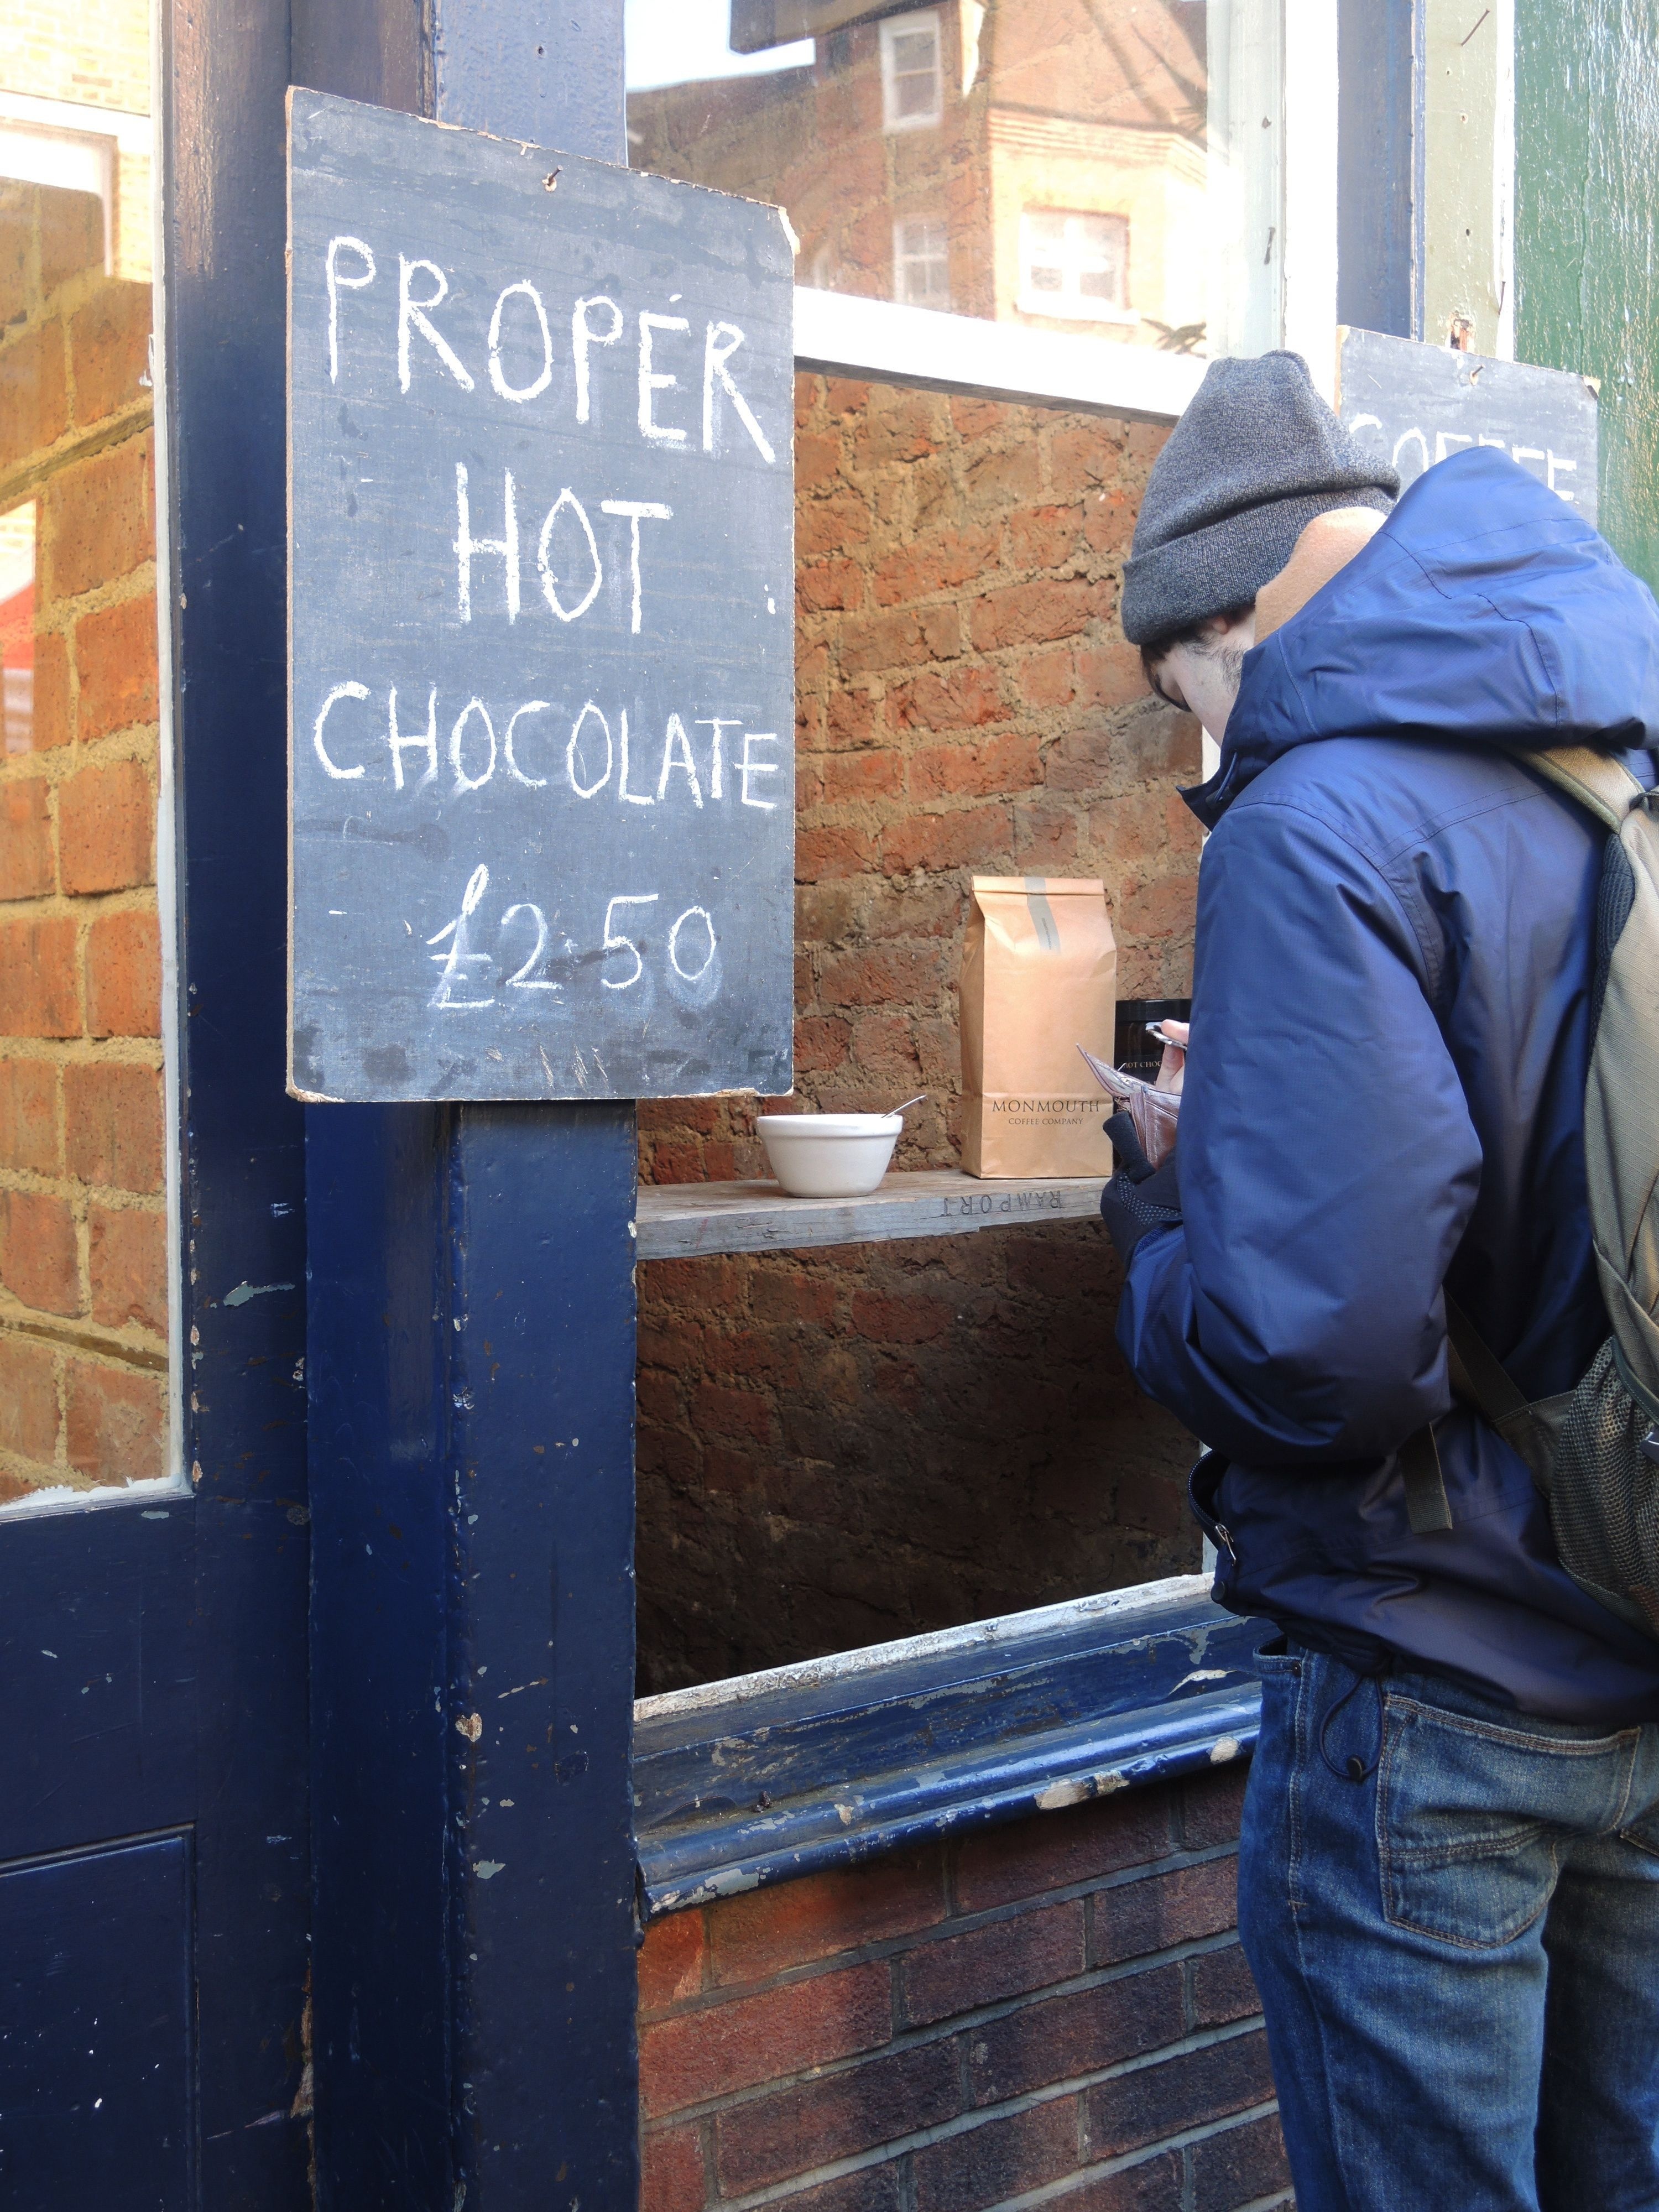 PROPER
HOT
CHOCOLATE
£2.50
COFFEE
MONMOUTH
COFFEE COMPANY
HOT CHOC
RAMPORT